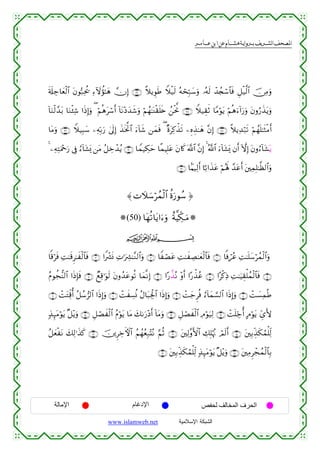 المصحف الشريف برواية هشام عن ابن عامر
وَمِنَ ٱلَّيْلِ فَٱسْجُدْ لَهُۥ وَسَبِّحْهُ لَيْلًا طَوِيلًا ۝ إِنَّ هَٰٓؤُلَآءِ يُحِبُّونَ ٱلْعَاجِلَةَ
وَيَذَرُونَ وَرَآءَهُمْ يَوْمًا ثَقِيلًا ۝ نَّحْنُ خَلَقْنَٰهُمْ وَشَدَدْنَآ أَسْرَهُمْ ۖ وَإِذَا شِئْنَا بَدَّلْنَآ
أَمْثَٰلَهُمْ تَبْدِيلًا ۝ إِنَّ هَٰذِهِۦ تَذْكِرَةٌ ۖ فَمَن شَآءَ ٱتَّخَذَ إِلَىٰ رَبِّهِۦ سَبِيلًا ۝ وَمَا
يَشَآءُونَ إِلَّآ أَن يَشَآءَ ٱللَّهُ ۚ إِنَّ ٱللَّهَ كَانَ عَلِيمًا حَكِيمًا ۝ يُدْخِلُ مَن يَشَآءُ فِى رَحْمَتِهِۦ ۚ
وَٱلظَّٰلِمِينَ أَعَدَّ لَهُمْ عَذَابًا أَلِيمًۢا ۝
﴿ سُورَةُ ٱلْمُرْسَلَاتِ ﴾
* مَكِّيَّةٌ وَءَايَاتُهَا (50) *
بِسْمِ ٱللَّهِ ٱلرَّحْمَٰنِ ٱلرَّحِيمِ
وَٱلْمُرْسَلَٰتِ عُرْفًا ۝ فَٱلْعَٰصِفَٰتِ عَصْفًا ۝ وَٱلنَّٰشِرَٰتِ نَشْرًا ۝ فَٱلْفَٰرِقَٰتِ فَرْقًا
۝ فَٱلْمُلْقِيَٰتِ ذِكْرًا ۝ عُذْرًا أَوْ نُذُرًا ۝ إِنَّمَا تُوعَدُونَ لَوَٰقِعٌ ۝ فَإِذَا ٱلنُّجُومُ
طُمِسَتْ ۝ وَإِذَا ٱلسَّمَآءُ فُرِجَتْ ۝ وَإِذَا ٱلْجِبَالُ نُسِفَتْ ۝ وَإِذَا ٱلرُّسُلُ أُقِّتَتْ ۝
لِأَىِّ يَوْمٍ أُجِّلَتْ ۝ لِيَوْمِ ٱلْفَصْلِ ۝ وَمَآ أَدْرَىٰكَ مَا يَوْمُ ٱلْفَصْلِ ۝ وَيْلٌ يَوْمَئِذٍ
لِّلْمُكَذِّبِينَ ۝ أَلَمْ نُهْلِكِ ٱلْأَوَّلِينَ ۝ ثُمَّ نُتْبِعُهُمُ ٱلْأَخِرِينَ ۝ كَذَٰلِكَ نَفْعَلُ
بِٱلْمُجْرِمِينَ ۝ وَيْلٌ يَوْمَئِذٍ لِّلْمُكَذِّبِينَ ۝
الحرف المخالف لحفص الإدغام الإمالة
الشبكة الإسلامية www.islamweb.net